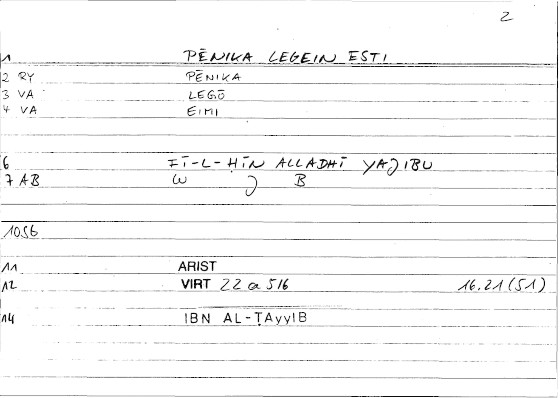 2
1 PĒNIKA LEGEIN ESTI
2 RY PĒNIKA
3 VA LEGŌ
4 VA EIMI
6 FĪ-L-ḤĪN ALLADHĪ YAJIBU
7 AB W J B
1056
11 ARIST
12 VIRT 22 a 5/6 16.21 (51)
14 IBN AL-ṬAyyIB